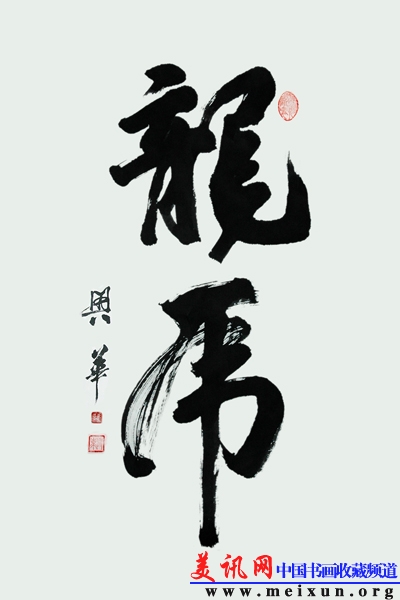 龍虎
興華
美讯网 中国书画收藏频道
www.meixun.org